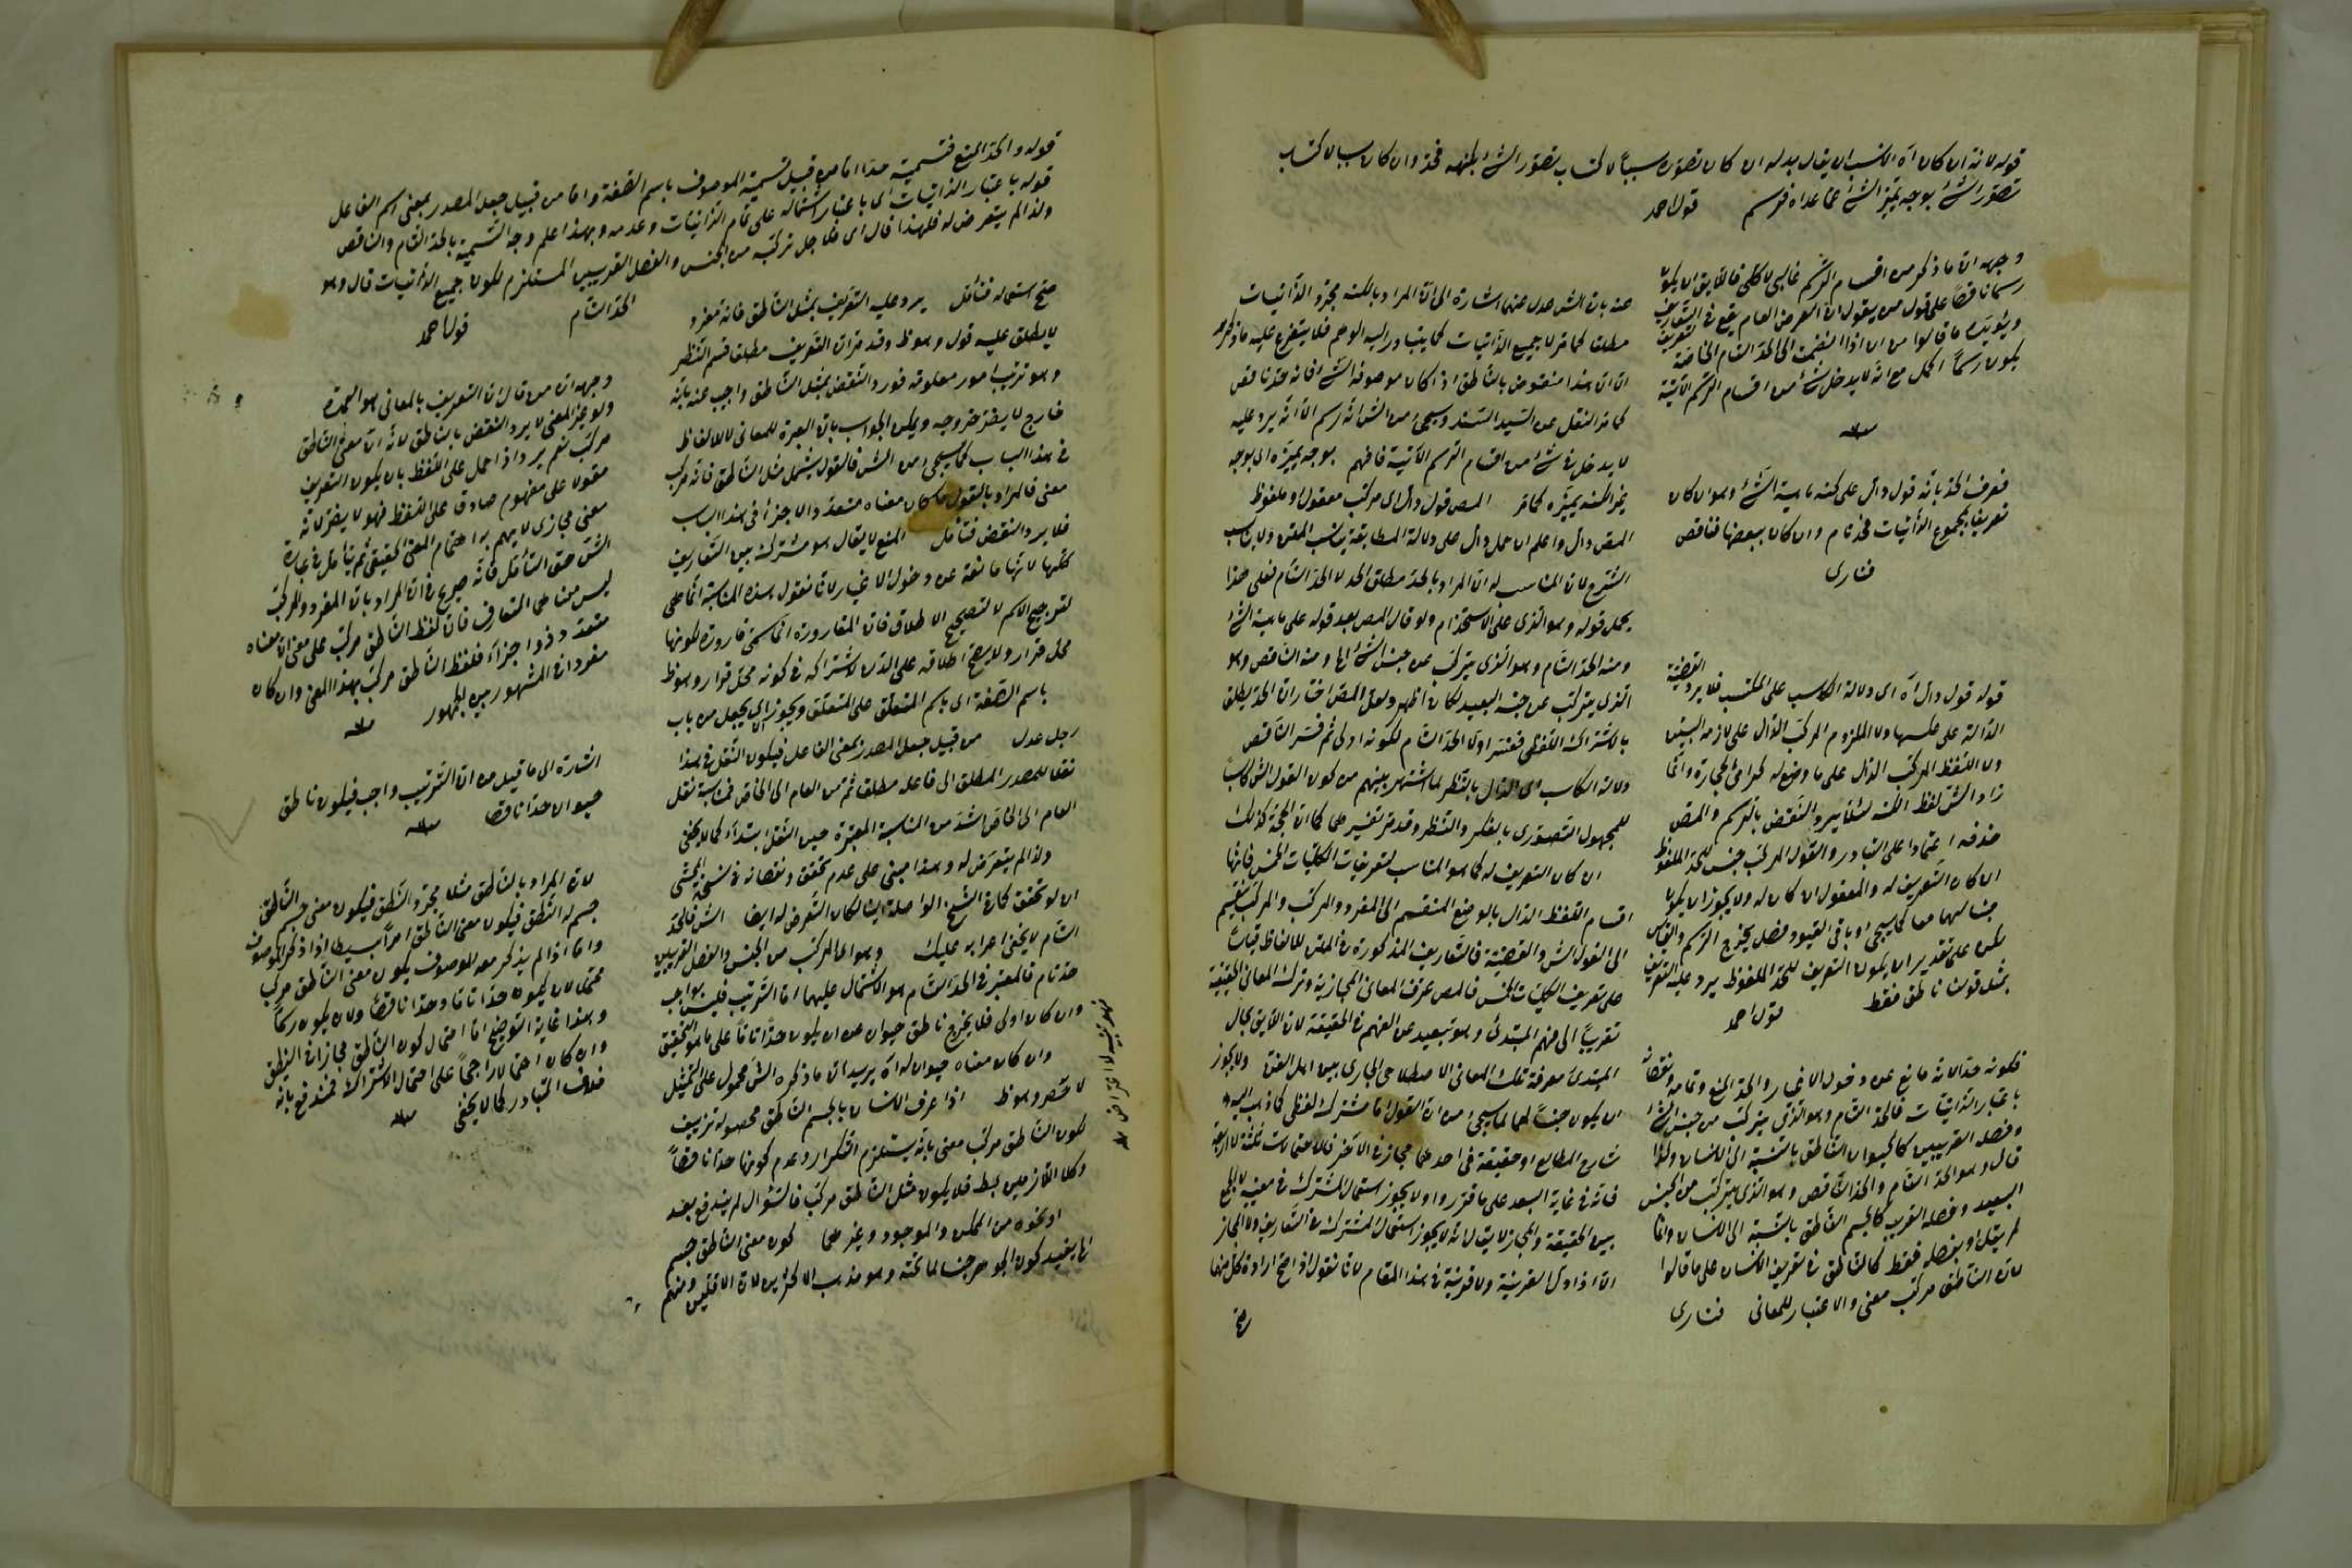 قوله لانه ان كان آه الانسب ان يقال بدله ان كان تصوره سببا لاكتساب تصور الشئ بكنهه فحد وان كان سببا لاكتساب
تصور الشئ بوجه يميز الشئ عما عداه فرسم قول احمد
وجهه ان ما ذكر من اقسام الرسم غالبى لا كلى فاللايق ان يكون
رسما ناقصا على قول من يقول ان العرض العام يقع فى التعاريف
ويؤيده ما قالوا من ان اذا انضمت الى الحد التام الخاصة
يكون رسما اكمل مع انه لا يدخل شئ من اقسام الرسم الآتية
منه
فعرف الحد بانه قول دال على كنه ماهية الشئ وهو ان كان
تعريفا بمجموع الذاتيات فحد تام وان كان ببعضها فناقص
فنارى
قوله قول دال آه اى دلالة الكاسب على المكتسب فلا يرد القضية
الدالة على عكسها ولا الملزوم المركب الدال على لازمه البين
ولا اللفظ المركب الدال على ما وضع له كرامى الحجارة وانما
زاد الش لفظ الكنه لئلا يرد النقض بالرسم والمص
حذفه اعتمادا على التبادر والقول المركب جنس للحد الملفوظ
ان كان التعريف له والمعقول ان كان له ولا يجوز ان يكون
جنسا لهما معا كما سيجئ وباقى القيود فصل يخرج الرسم والقياس
لكن على تقدير ان يكون التعريف للحد الملفوظ يرد عليه التعريف
بمثل قولنا ناطق فقط قول احمد
فكونه حدا لانه مانع عن دخول الاغيار والحد المنع وتمامه ونقصانه
باعتبار الذاتيات فالحد التام وهو الذى يتركب من جنس الشئ
وفصله القريبين كالحيوان الناطق بالنسبة الى الانسان ولذا
قال وهو الحد التام والحد الناقص وهو الذى يتركب من الجنس
البعيد وفصله القريب كالجسم الناطق بالنسبة الى الانسان وانما
لم يقل او بفصله فقط كالناطق فى تعريف الانسان على ما قالوا
لان الناطق مركب معنى والاعتبار للمعانى فنارى
عنه بان الش عدل عنها اشارة الى ان المراد بالكنه مجرد الذاتيات
مطلقا كما مر لا جميع الذاتيات كما يتبادر اليه الوهم فلا يتفرع عليه ما ذكره
ان ان هذا منقوض بالناطق اذا كان موصوفه الشئ فانه حد ناقص
كما مر النقل عن السيد السند وسيجئ من الش انه رسم الا انه يرد عليه
لا يدخل فى شئ من اقسام الرسم الآتية فافهم بوجه يميزه اى بوجه
غير الكنه يميزه كما مر المص قول دال اى مركب معقول او ملفوظ
المص دال واعلم ان حمل دال على دلالة المطابقة يناسب المتن ولا يناسب
الشرح لان المناسب له ان المراد بالحد مطلق الحد لا الحد التام فعلى هذا
يحمل قوله وهو الذى على الاستخدام ولو قال المص بعد قوله على ماهية الشئ
ومنه الحد التام وهو الذى يتركب عن جنس الشئ الخ ومنه الناقص وهو
الذى يتركب عن جنسه البعيد لكان اظهر ولعل المص اختار ان الحد يطلق
بالاشتراك اللفظى ففسر اولا الحد التام لكونه اولى ثم فسر الناقص
دلالة الكاسب اى الدال بالنظر لما اشتهر بينهم من كون القول الش كاسبا
للمجهول التصورى بالفكر والنظر وقد مر تفسيرهما كما ان الحجة كذلك
ان كان التعريف له كما هو المناسب لتعريفات الكليات الخمس فانها
اقسام اللفظ الدال بالوضع المنقسم الى المفرد والمركب والمركب ينقسم
الى القول الش والقضية فالتعاريف المذكورة فى المتن للالفاظ قياسا
على تعريف الكليات الخمس فالمص عرف المعانى المجازية وترك المعانى الحقيقية
تقريبا الى فهم المبتدئ وهو تبعيد عن الفهم فى الحقيقة لان اللايق بحال
المبتدئ معرفة تلك المعانى الاصطلاحى الجارى بين اهل الفن ولا يجوز
ان يكون جنسا لهما لما سيجئ من ان القول اما مشترك لفظى كما ذهب اليه
شارح المطالع او حقيقة فى احدهما مجاز فى الآخر فالاحتمالات ثلثة لا اربعة
فانه فى غاية البعد على ما قرروا ولا يجوز استعمال المشترك فى معنييه لا للجمع
بين الحقيقة والمجاز لا يقال انه لا يجوز استعمال المشترك فى التعاريف ولا المجاز
الا اذا دل القرينة ولا قرينة فى هذا المقام لانا نقول اذا صح ارادة كل منهما
صح
قوله والحد المنع فتسميته حدا اما من قبيل تسمية الموصوف باسم الصفة واما من قبيل جعل المصدر بمعنى اسم الفاعل
قوله باعتبار الذاتيات اى باعتبار اشتماله على تمام الذاتيات وعدمه وبهذا علم وجه التسمية بالحد التام والناقص
ولذا لم يتعرض له فلهذا قال اى فلاجل تركبه من الجنس والفصل القريبين المستلزم لكون جميع الذاتيات قال وهو
الحد التام قول احمد
صح استعماله فتأمل يرد عليه التعريف بمثل الناطق فانه مفرد
لا يطلق عليه قول وهو ظ وقد مر ان التعريف مطلقا قسم النظر
وهو ترتيب امور معلومة فورد النقض بمثل الناطق واجيب عنه بانه
خارج لا يضر خروجه ويمكن الجواب بان العبرة للمعانى لا للالفاظ
فى هذا الباب كما سيجئ من الش فالقول يشمل مثل الناطق فانه مركب
معنى فالمراد بالقول ما كان معناه متعددا لاجزأ فى هذا الباب
فلا يرد النقض فتأمل المنع لا يقال هو مشترك بين التعاريف
كلها لانها مانعة عن دخول الاغيار لانا نقول هذه المناسبة انما هى
لترجيح الاسم لا لتصحيح الاطلاق فان القارورة انما سمى قارورة لكونها
محل قرار ولا يصح اطلاقه على الدن لاشتراكه فى كونه محل قرار وهو ظ
باسم الصفة اى باسم المتعلق على المتعلق ويجوز ان يجعل من باب
رجل عدل من قبيل جعل المصدر بمعنى الفاعل فيكون النقل فى هذا
نقلا للمصدر المطلق الى فاعله مطلقا ثم من العام الى الخاص فمناسبة نقل
العام الى الخاص اشد من المناسبة المعتبرة حين النقل ابتداء كما لا يخفى
ولذا لم يتعرض له وهذا مبنى على عدم تحقق ونقصانه فى نسخة المحشى
اذ لو تحقق كما فى النسخ الواصلة الينا لكان التعرض له ايضا الش فالحد
التام لا يخفى اعرابه عليك وهو اى المركب من الجنس والفصل القريبين
حد تام فالمعتبر فى الحد التام هو الاشتمال عليهما اما الترتيب فليس بواجب
وان كان اولى فلا يخرج ناطق حيوان عن ان يكون حدا تاما على ما هو التحقيق
وان كان معناه حيوان له آه يريد ان ما ذكره الش محمول على التمثيل
لا حصر وهو ظ اذا عرف الانسان بالجسم الناطق محصوله تزييف
لكون الناطق مركب معنى بانه يستلزم التكرار وعدم كونها حدا ناقصا
وكلا اللازمين بط فلا يكون مثل الناطق مركب فالسؤال لم يندفع بعد
او نحوه من الممكن والموجود وغيرهما كون معنى الناطق جسم
انما يفيد كون الجوهر جنسا لما تحته وهو مذهب الاكثرين لان الاقلين ومنهم
فهو تنبيه لا اعتراض منه
وجهه ان من قال ان التعريف بالمعانى هو العمدة
ولو غير المعنى لا يرد النقض بالناطق لانه ان معنى الناطق
مركب نعم يرد اذا حمل على اللفظ بان يكون التعريف
مقولا على مفهوم صادق على اللفظ فهو لا يضر لانه
معنى مجازى لا يهم به اهتمام المعنى الحقيقى ثم تأمل فى عبارة
الش حق التأمل فانه صريح فى ان المراد بان المفرد والمركب
ليس منا على المتعارف فان لفظ الناطق مركب على معنى ان معناه
متعدد وذو اجزاء فلفظ الناطق مركب بهذا المعنى وان كان
مفردا فى المشهور بين الجمهور منه
اشارة الى ما قيل من ان الترتيب واجب فيكون ناطق
حيوان حدا ناقصا منه
لان المراد بالناطق مثلا مجرد النطق فيكون معنى جسم الناطق
جسم له النطق فيكون معنى الناطق امرا بسيطا اذا ذكر الموصوف
واما اذا لم يذكر معه الموصوف يكون معنى الناطق مركب
محتمل لان يكون حدا تاما وحدا ناقصا ولان يكون رسما
وهذا غاية التوضيح اما احتمال كون الناطق مجازا فى النطق
وان كان احتمالا راجحا على احتمال الاشتراك فمندفع بانه
خلاف المتبادر كما لا يخفى منه